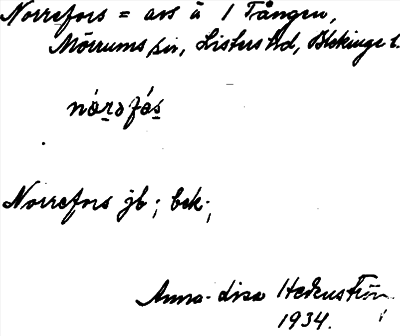 Norrefors = avs å 1 Tången,
Mörrums sn, Listers hd, Blekinge l.
nórəfós
Norrefors jb; bek;
Anna-Lisa
1934.